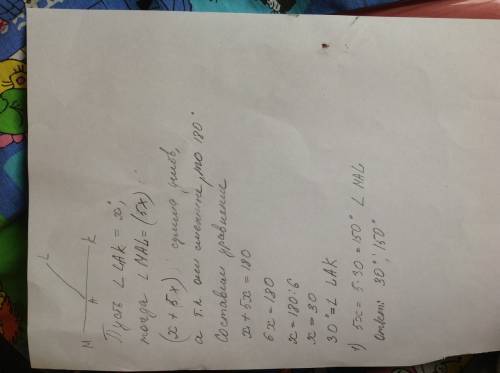 M A L K
Пусть ∠ LAK = x°,
тогда ∠ MAL = (5x)°
(x + 5x)° сумма углов,
а т.к они смежные, то 180°
Составим уравнение
x + 5x = 180
6x = 180
x = 180:6
x = 30
30° = ∠ LAK
1) 5x = 5·30 = 150° ∠ MAL
ответ: 30°; 150°